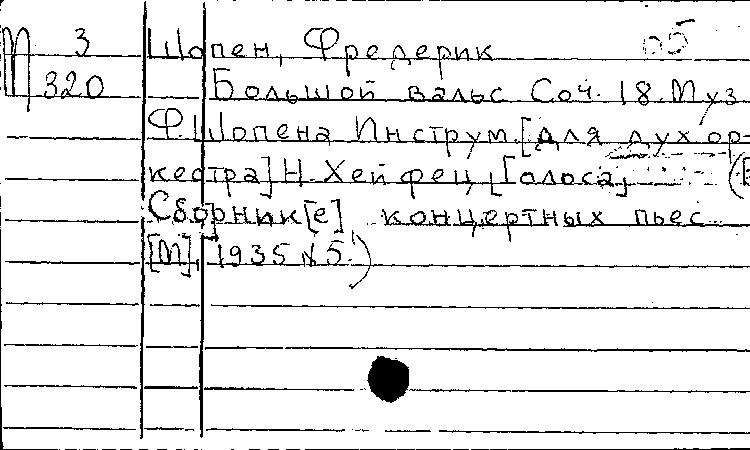 М 3 Шопен, Фредерик 05
320 Большой вальс Соч. 18. Муз
Ф. Шопена Инструм. [для дух ор-
кестра] Н. Хейфец, [Голоса]
Сборник[е] концертных пьес
[М], 1935 №5.)